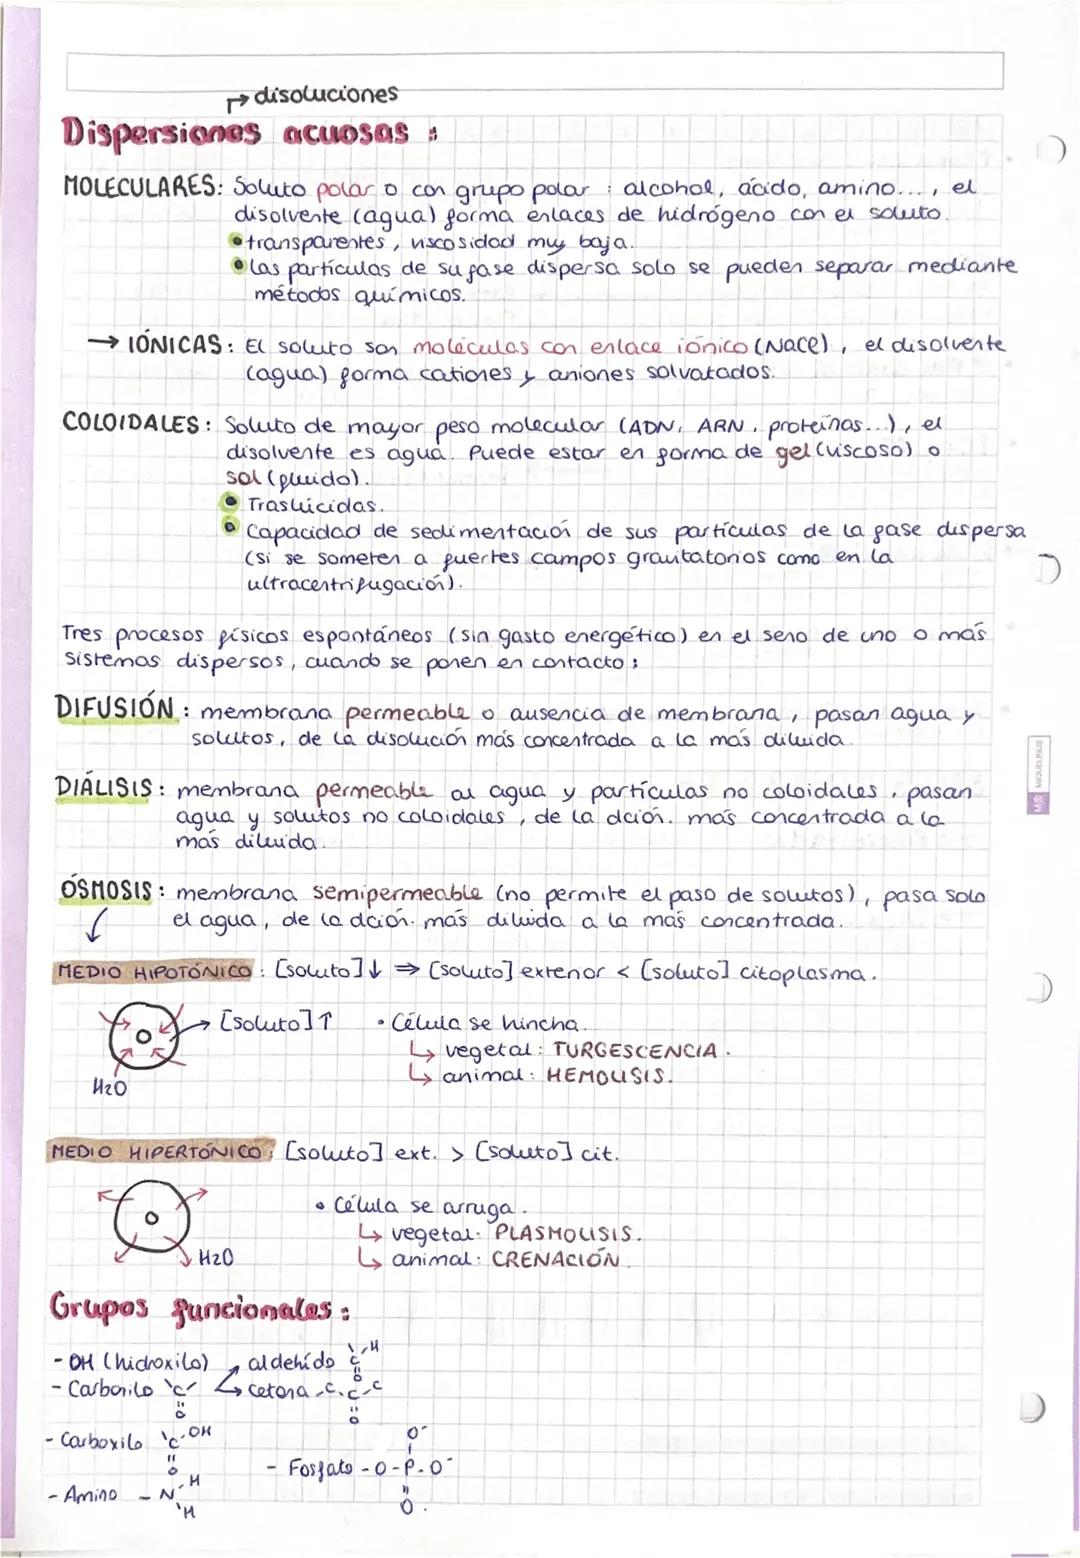 ↱ disoluciones
Dispersiones acuosas :
MOLECULARES: Soluto polar o con grupo polar : alcohol, ácido, amino..., el
disolvente (agua) forma enlaces de hidrógeno con el soluto.
• transparentes, viscosidad muy baja.
• Las partículas de su fase dispersa solo se pueden separar mediante
métodos químicos.
→ IÓNICAS: El soluto son moléculas con enlace iónico (NaCl), el disolvente
(agua) forma cationes y aniones solvatados.
COLOIDALES: Soluto de mayor peso molecular (ADN, ARN, proteínas...), el
disolvente es agua. Puede estar en forma de gel (viscoso) o
sol (fluido).
• Traslúcidas.
• Capacidad de sedimentación de sus partículas de la fase dispersa
(si se someten a fuertes campos gravitatorios como en la
ultracentrifugación).
Tres procesos físicos espontáneos (sin gasto energético) en el seno de uno o más
sistemas dispersos, cuando se ponen en contacto:
DIFUSIÓN: membrana permeable o ausencia de membrana, pasan agua y
solutos, de la disolución más concentrada a la más diluida.
DIÁLISIS: membrana permeable al agua y partículas no coloidales, pasan
agua y solutos no coloidales, de la dción. más concentrada a la
más diluida.
ÓSMOSIS: membrana semipermeable (no permite el paso de solutos), pasa solo
el agua, de la dción. más diluida a la más concentrada.
MEDIO HIPOTÓNICO: [soluto]↓ ⇒ [soluto] exterior < [soluto] citoplasma.
→ [soluto]↑ • Célula se hincha.
↳ vegetal: TURGESCENCIA.
↳ animal: HEMOLISIS.
H2O
MEDIO HIPERTÓNICO: [soluto] ext. > [soluto] cit.
• Célula se arruga.
↳ vegetal: PLASMOLISIS.
↳ animal: CRENACIÓN.
H2O
Grupos funcionales:
- OH (hidroxilo) ↗ aldehído C H O
- Carbonilo C O ↳ cetona C C C O
- Carboxilo C OH O
- Fosfato -O-P-O⁻ O⁻ O.
- Amino - N H H
MIQUELRIUS